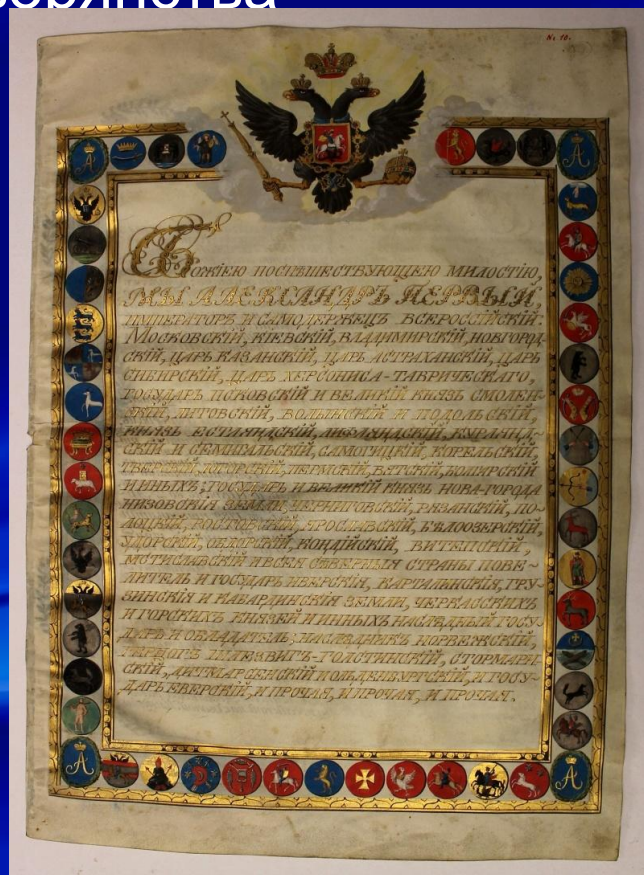 № 10.
БОЖІЕЮ ПОСПѢШЕСТВУЮЩЕЮ МИЛОСТІЮ,
МЫ АЛЕКСАНДРЪ ПЕРВЫЙ,
ИМПЕРАТОРЪ И САМОДЕРЖЕЦЪ ВСЕРОССІЙСКІЙ:
МОСКОВСКІЙ, КІЕВСКІЙ, ВЛАДИМИРСКІЙ, НОВГОРОД-
СКІЙ, ЦАРЬ КАЗАНСКІЙ, ЦАРЬ АСТРАХАНСКІЙ, ЦАРЬ
СИБИРСКІЙ, ЦАРЬ ХЕРСОНИСА-ТАВРИЧЕСКАГО,
ГОСУДАРЬ ПСКОВСКІЙ И ВЕЛИКІЙ КНЯЗЬ СМОЛЕН-
СКІЙ, ЛИТОВСКІЙ, ВОЛЫНСКІЙ И ПОДОЛЬСКІЙ,
КНЯЗЬ ЕСТЛЯНДСКІЙ, ЛИФЛЯНДСКІЙ, КУРЛЯНД-
СКІЙ И СЕМИГАЛЬСКІЙ, САМОГИЦКІЙ, КОРЕЛЬСКІЙ,
ТВЕРСКІЙ, ЮГОРСКІЙ, ПЕРМСКІЙ, ВЯТСКІЙ, БОЛГАРСКІЙ
И ИНЫХЪ; ГОСУДАРЬ И ВЕЛИКІЙ КНЯЗЬ НОВА-ГОРОДА
НИЗОВСКІЯ ЗЕМЛИ, ЧЕРНИГОВСКІЙ, РЯЗАНСКІЙ, ПО-
ЛОЦКІЙ, РОСТОВСКІЙ, ЯРОСЛАВСКІЙ, БѢЛООЗЕРСКІЙ,
УДОРСКІЙ, ОБДОРСКІЙ, КОНДІЙСКІЙ, ВИТЕПСКІЙ,
МСТИСЛАВСКІЙ И ВСЕЯ СѢВЕРНЫЯ СТРАНЫ ПОВЕ-
ЛИТЕЛЬ И ГОСУДАРЬ ИВЕРСКІЯ, КАРТАЛИНСКІЯ, ГРУ-
ЗИНСКІЯ И КАБАРДИНСКІЯ ЗЕМЛИ, ЧЕРКАССКИХЪ
И ГОРСКИХЪ КНЯЗЕЙ И ИННЫХЪ НАСЛѢДНЫЙ ГОСУ-
ДАРЬ И ОБЛАДАТЕЛЬ; НАСЛѢДНИКЪ НОРВЕЖСКІЙ,
ГЕРЦОГЪ ШЛЕЗВИГЪ-ГОЛСТИНСКІЙ, СТОРМАРН-
СКІЙ, ДИТМАРСЕНСКІЙ И ОЛЬДЕНБУРГСКІЙ, И ГОСУ-
ДАРЬ ЕВЕРСКІЙ, И ПРОЧАЯ, И ПРОЧАЯ, И ПРОЧАЯ.